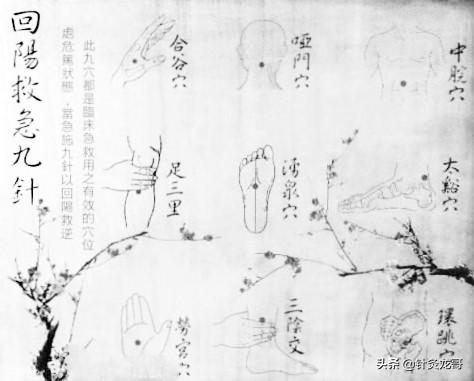 回陽救急九針
此九穴都是臨床急救用之有效的穴位
處危篤狀態，當急施九針以回陽救逆
合谷穴
啞門穴
中脘穴
足三里
湧泉穴
太谿穴
勞宮穴
三陰交
環跳穴
头条 @针灸龙哥